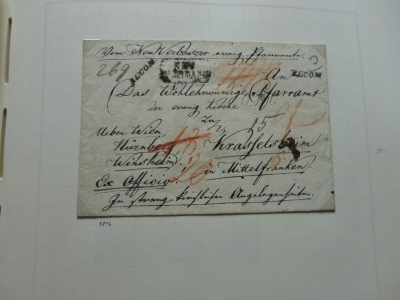 Vom Neu Verbaszer evang. Pfarramte
269
RECOM
NEU
An
RECOM
Das Wohlehrwürdige Pfarramt
der evang. Kirche
zu
15
Ueber Wien
Nürnberg
Krassolzheim
Winsheim
in Mittelfranken.
Ex Officio.
In streng-kirchlichen Angelegenheiten.